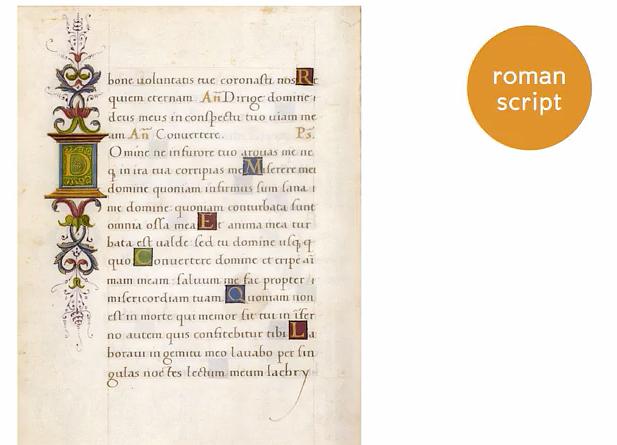 bone uoluntatis tue coronasti nos Re
quiem eternam An Dirige domine
deus meus in conspectu tuo uiam me
am An Conuertere. Ps.
Domine ne in furore tuo arguas me ne
q in ira tua corripias me Miserere mei
domine quoniam infirmus sum sana
me domine quoniam conturbata sunt
omnia ossa mea Et anima mea tur
bata est ualde sed tu domine usq q
quo Conuertere domine et eripe ai
mam meam saluum me fac propter
misericordiam tuam. Quoniam non
est in morte qui memor sit tui in ifer
no autem quis confitebitur tibi La
boraui in gemitu meo lauabo per sin
gulas noctes lectum meum lachry
roman
script